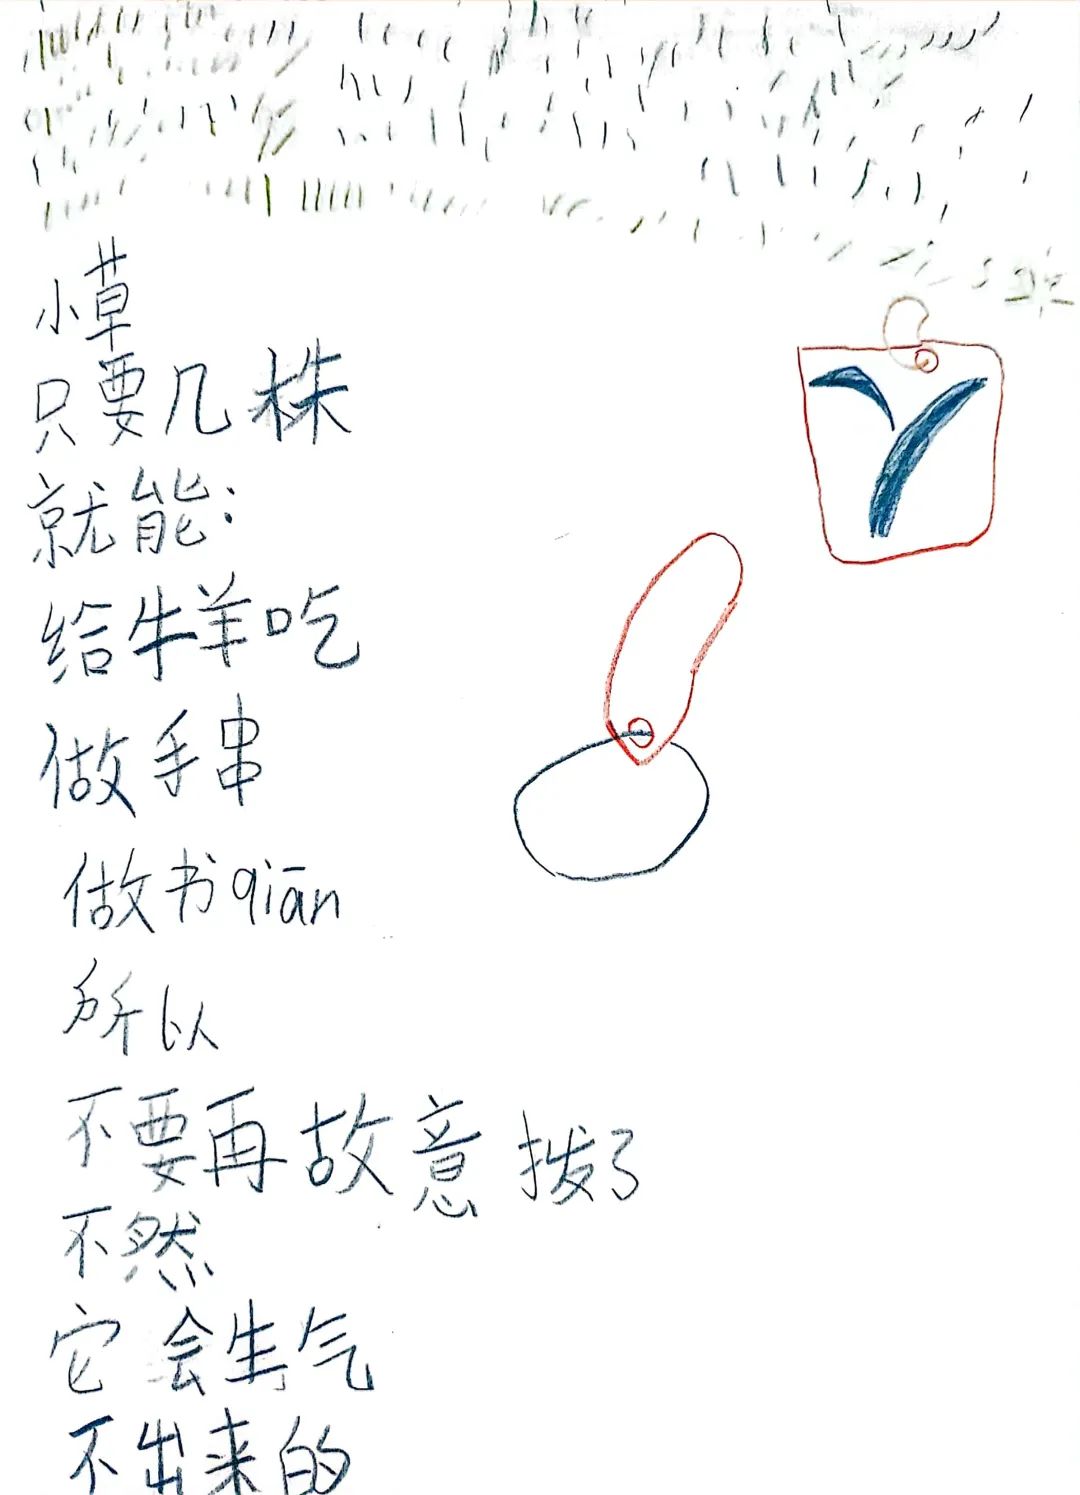 小草
只要几株
就能：
给牛羊吃
做手串
做书qiān
所以
不要再故意拨了
不然
它会生气
不出来的